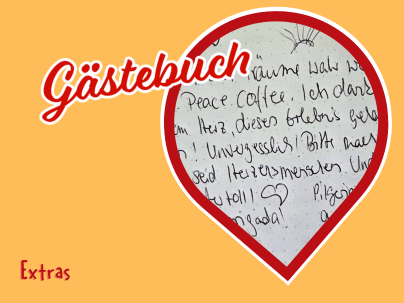 Gästebuch
räume wahr
Peace Coffee. Ich dank
Herz, dieses Erlebnis
! Unvergesslich! Bitte
seid Herzensmenschen. Und
toll! ♡ Pilger
rigada!
Extras